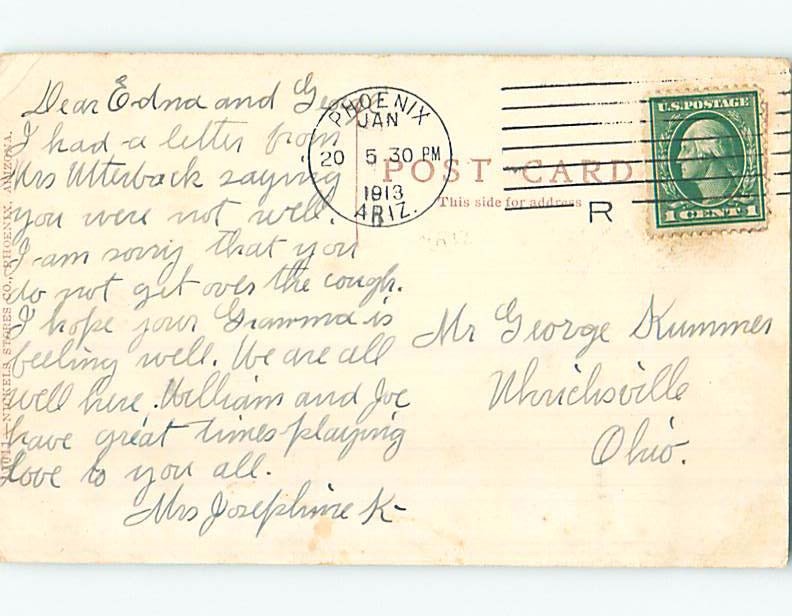 Dear Edna and Geo
I had a letter from
Mrs Utterback saying
you were not well.
I am sorry that you
do not get over the cough.
I hope your Gramma is
feeling well. We are all
well here. William and Joe
have great times playing
Love to you all.
Mrs Josephine K-
PHOENIX
JAN
20 5 30 PM
1913
ARIZ.
POST CARD
This side for address
R
U.S. POSTAGE
1 CENT 1
Mr George Kummer
Uhrichsville
Ohio.
NICKELS STORES CO., PHOENIX, ARIZONA.